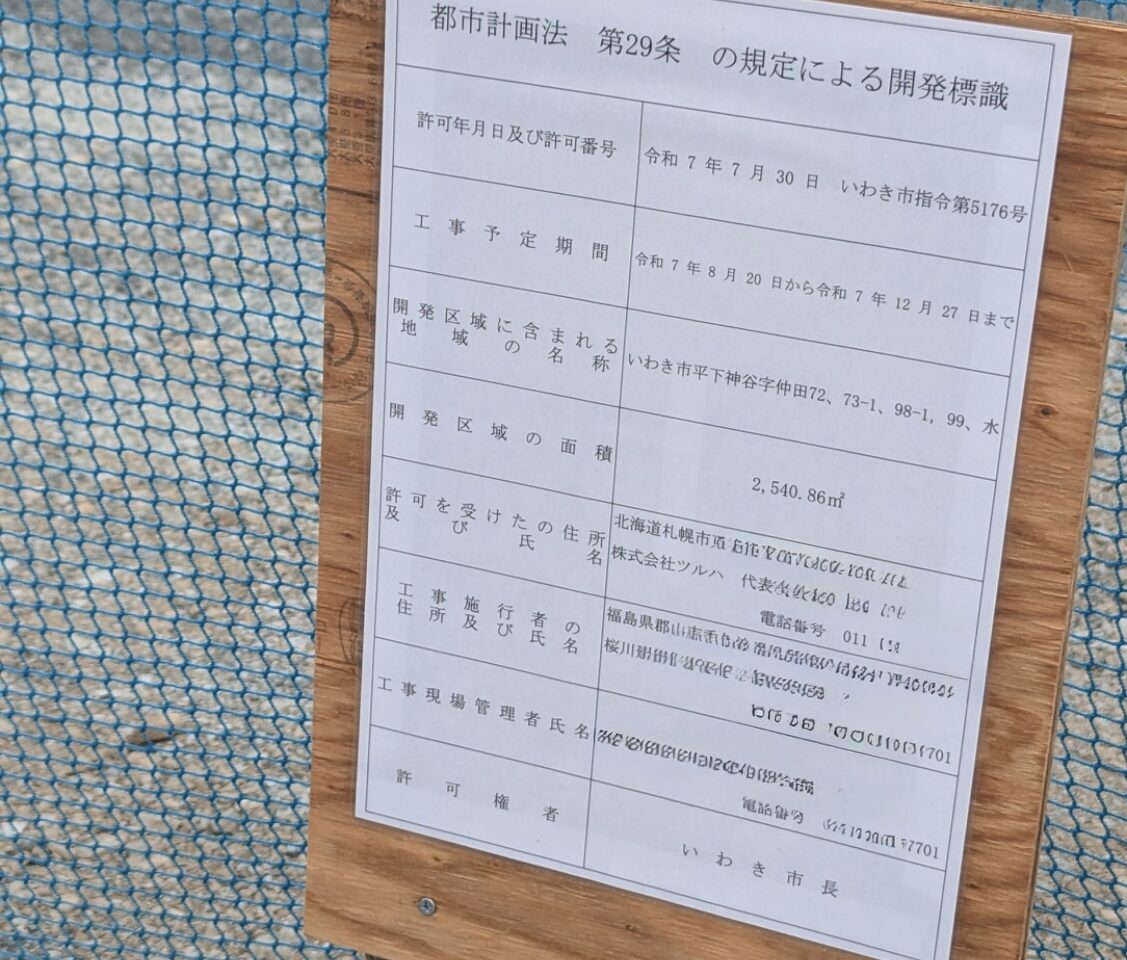 都市計画法 第29条 の規定による開発標識
許可年月日及び許可番号
令和 7 年 7 月 30 日 いわき市指令第5176号
工事予定期間
令和 7 年 8 月 20 日から令和 7 年 12 月 27 日まで
開発区域に含まれる
地域の名称
いわき市平下神谷字仲田72、73-1、98-1, 99、水
開発区域の面積
2,540.86㎡
許可を受けたの住所
及び氏名
北海道札幌市
株式会社ツルハ 代表
電話番号 011
工事施行者の
住所及び氏名
福島県郡山
桜川
701
工事現場管理者氏名
電話番号 7701
許可権者
いわき市長